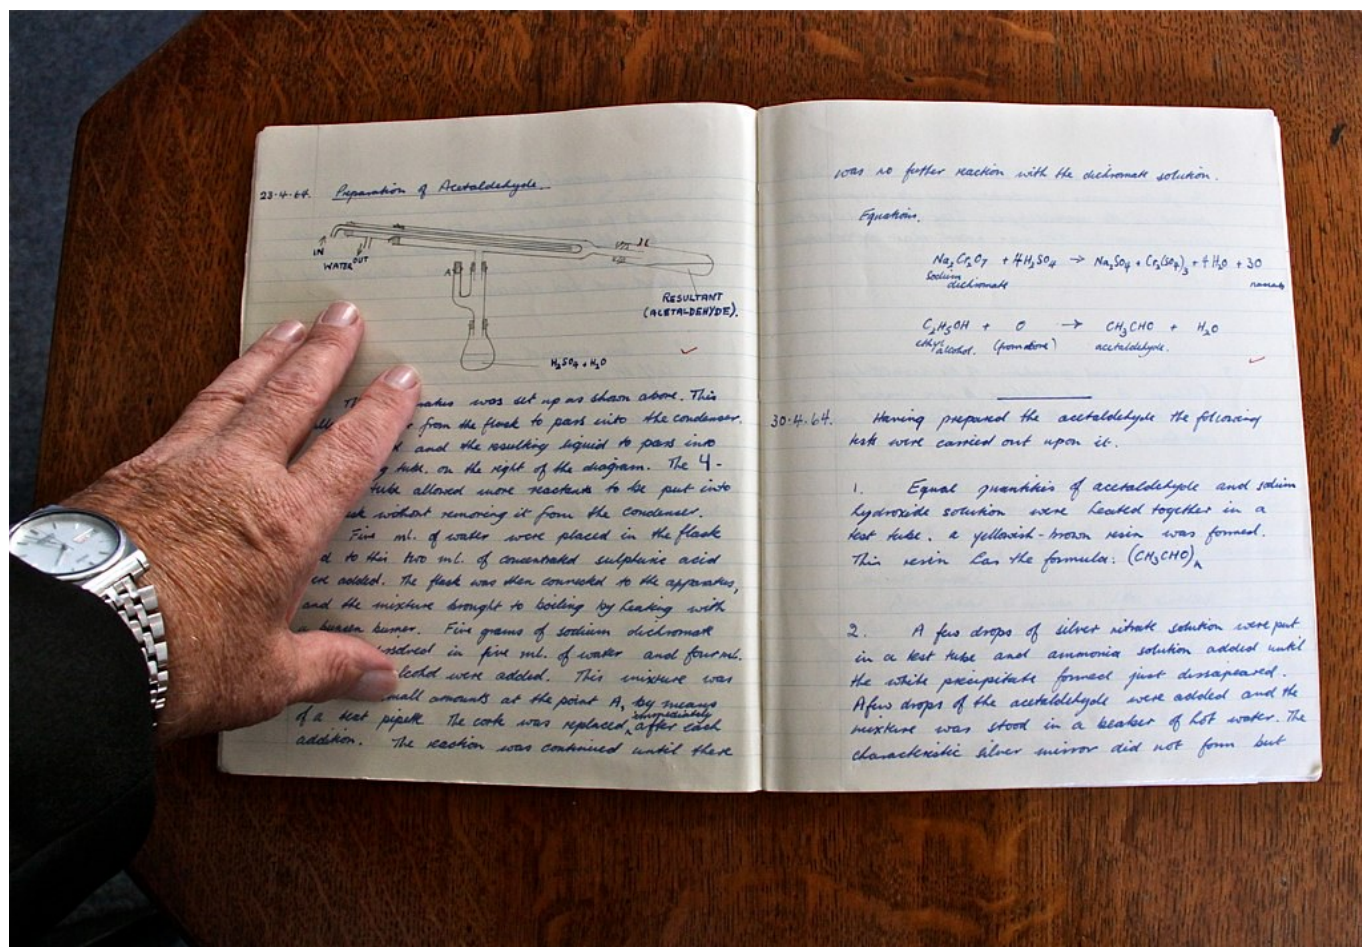 23.4.64. Preparation of Acetaldehyde.
IN
WATER OUT
A
RESULTANT
(ACETALDEHYDE).
H₂SO₄ + H₂O
was set up as shown above. This
from the flask to pass into the condenser
and the resulting liquid to pass into
tube. on the right of the diagram. The 4-
tube allowed more reactants to be put into
without removing it from the condenser.
Five ml. of water were placed in the flask
to this two ml. of concentrated sulphuric acid
added. The flask was then connected to the apparatus,
and the mixture brought to boiling by heating with
a bunsen burner. Five grams of sodium dichromate
in five ml. of water and four ml.
were added. This mixture was
small amounts at the point A, by means
of a teat pipette. The cork was replaced, immediately after each
addition. The reaction was continued until there
was no further reaction with the dichromate solution.
Equations.
Na₂Cr₂O₇ + 4H₂SO₄ → Na₂SO₄ + Cr₂(SO₄)₃ + 4H₂O + 3O
sodium
dichromate
C₂H₅OH + O → CH₃CHO + H₂O
ethyl alcohol. (from above) acetaldehyde.
30.4.64. Having prepared the acetaldehyde the following
tests were carried out upon it.
1. Equal quantities of acetaldehyde and sodium
hydroxide solution were heated together in a
test tube. a yellowish-brown resin was formed.
This resin has the formula: (CH₃CHO)ₙ
2. A few drops of silver nitrate solution were put
in a test tube and ammonia solution added until
the white precipitate formed just dissapeared.
A few drops of the acetaldehyde were added and the
mixture was stood in a beaker of hot water. The
characteristic silver mirror did not form but